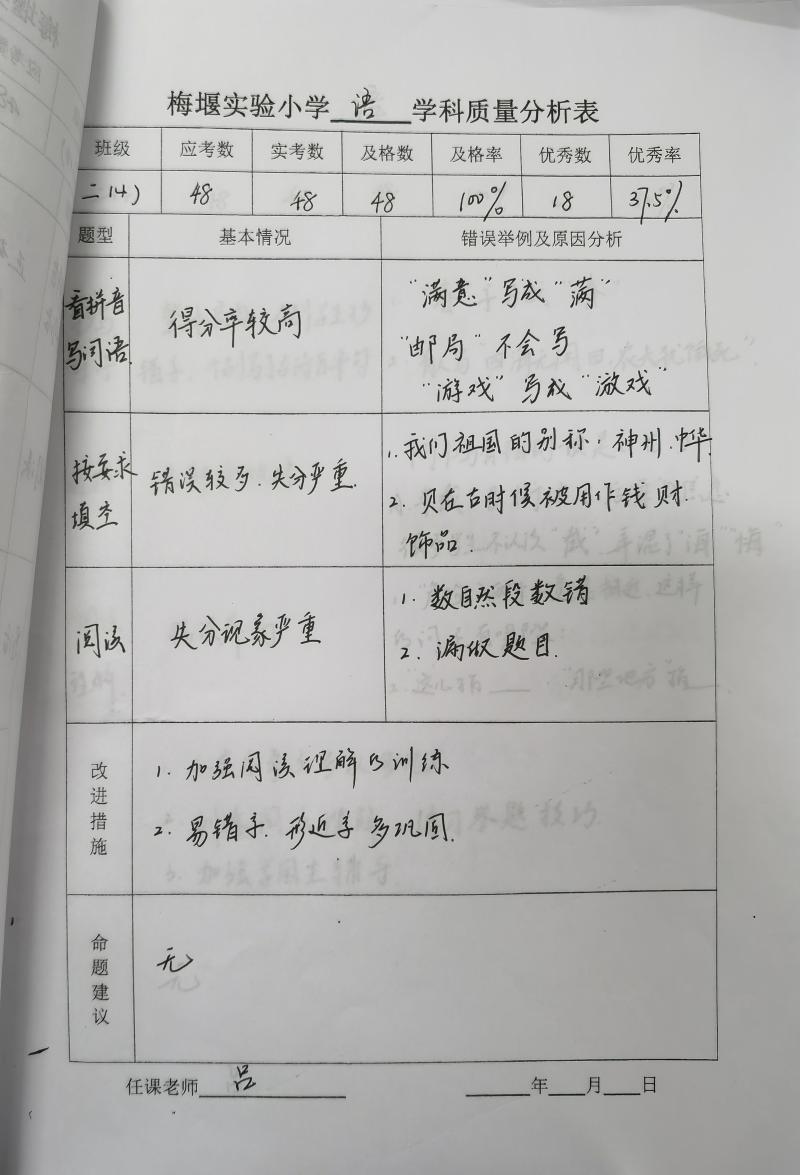 梅堰实验小学 语 学科质量分析表
班级 应考数 实考数 及格数 及格率 优秀数 优秀率
二(4) 48 48 48 100% 18 37.5%
题型 基本情况 错误举例及原因分析
看拼音
写词语
得分率较高
“满意”写成“满”
“邮局”不会写
“游戏”写成“游戏”
按要求
填空
错误较多、失分严重.
1. 我们祖国的别称,神州、中华
2. 贝在古时候被用作钱财.
饰品.
阅读
失分现象严重
1. 数自然段数错
2. 漏做题目.
改进措施
1. 加强阅读理解的训练
2. 易错字. 形近字多巩固.
命题建议
无
任课老师 吕 年 月 日